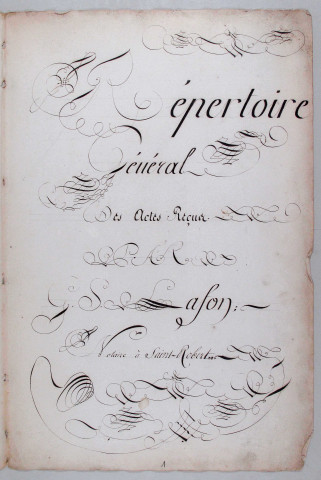 Répertoire
Général
Des Actes Reçus
PAR
G. S. Lafon;
Notaire à Saint-Robert
1